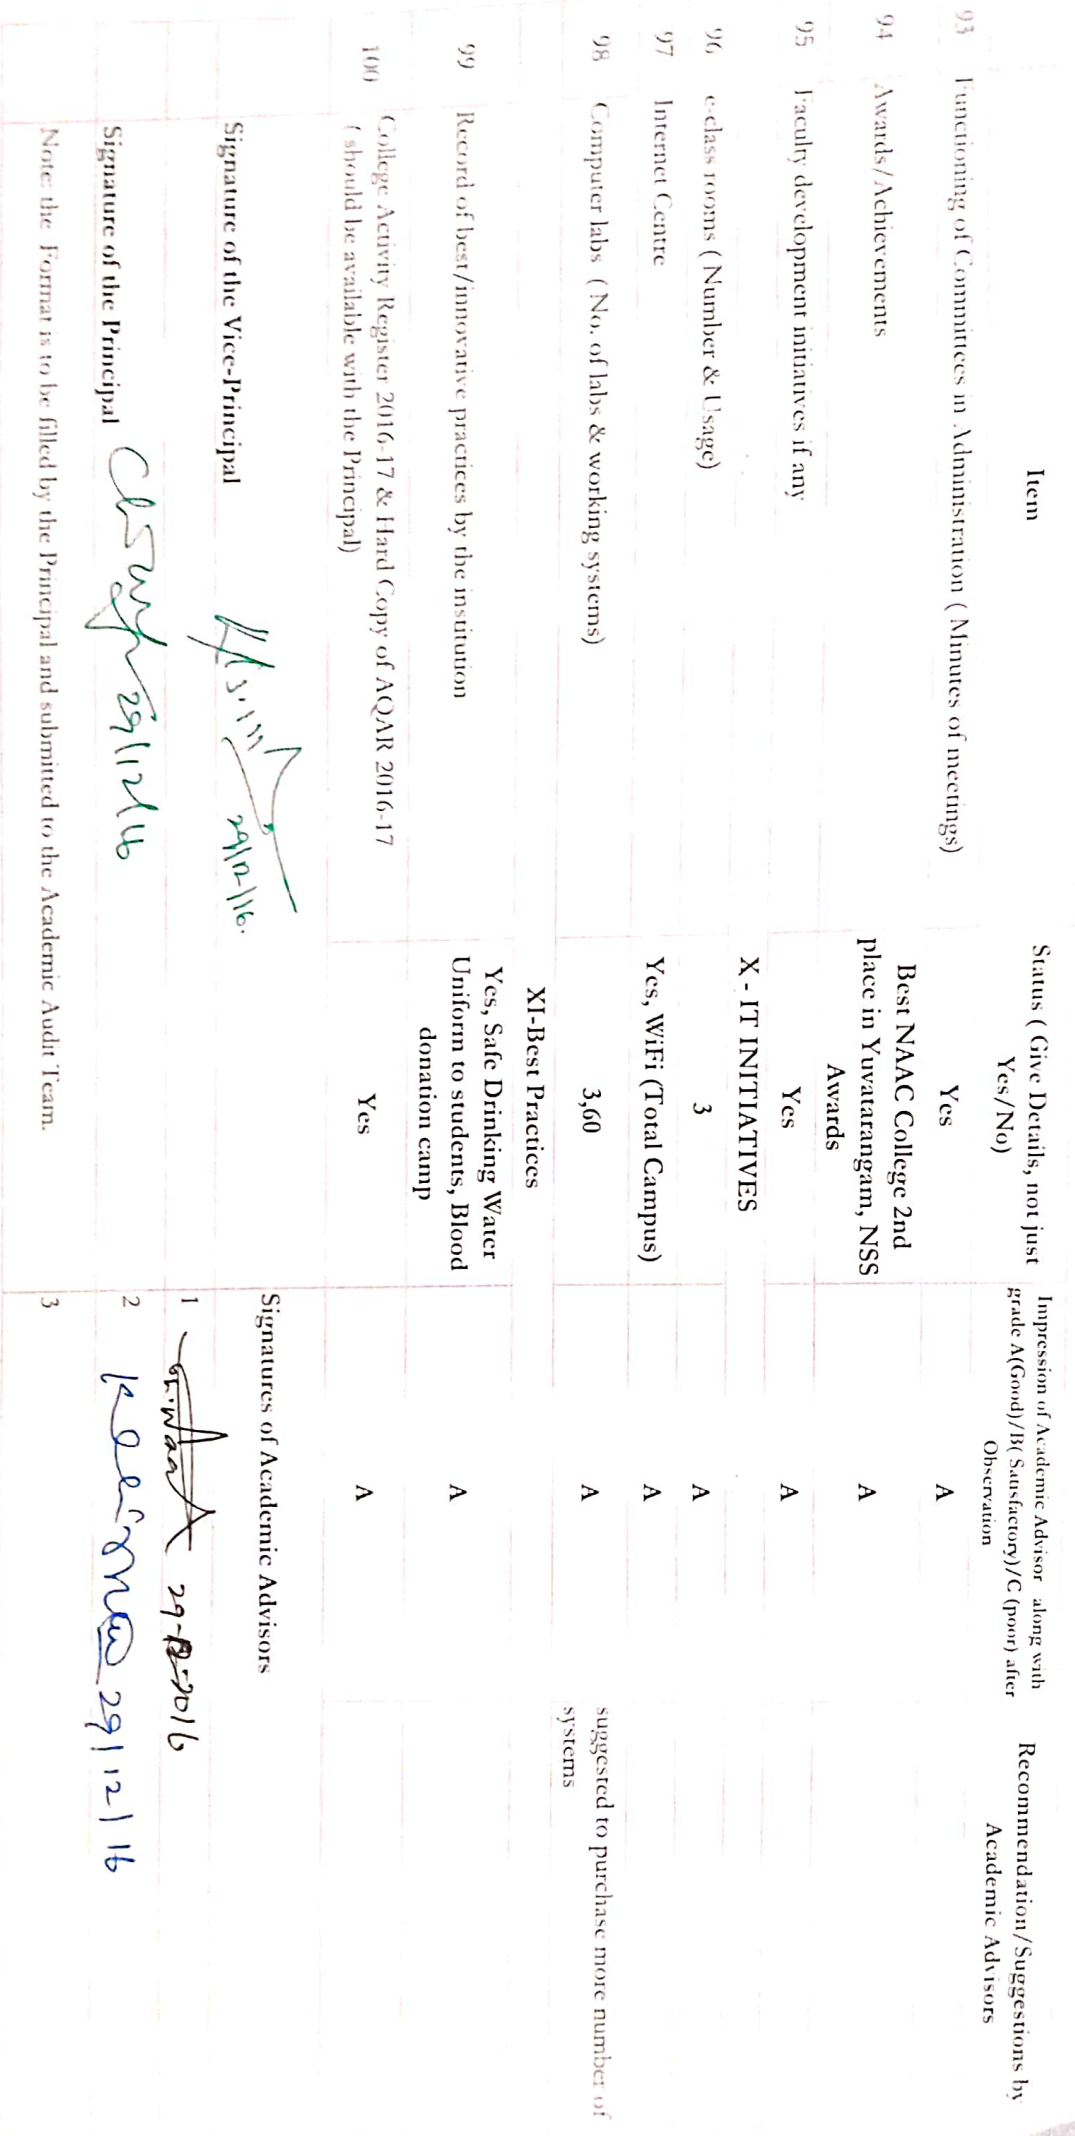 Item
Status ( Give Details, not just
Yes/No)
Impression of Academic Advisor along with
grade A(Good)/B( Satisfactory)/C (poor) after
Observation
Recommendation/Suggestions by
Academic Advisors
93 Functioning of Committees in Administration ( Minutes of meetings) Yes A
94 Awards/Achievements
Best NAAC College 2nd
place in Yuvatarangam, NSS
Awards
A
95 Faculty development initiatives if any Yes A
X - IT INITIATIVES
96 e-class rooms ( Number & Usage) 3 A
97 Internet Centre Yes, WiFi (Total Campus) A
98 Computer labs ( No. of labs & working systems) 3,60 A
suggested to purchase more number of
systems
XI-Best Practices
99 Record of best/innovative practices by the institution
Yes, Safe Drinking Water
Uniform to students, Blood
donation camp
A
100 College Activity Register 2016-17 & Hard Copy of AQAR 2016-17
( should be available with the Principal)
Yes A
Signature of the Vice-Principal
29/12/16.
Signatures of Academic Advisors
1 29-12-2016
Signature of the Principal 29/12/16
2 29/12/16
3
Note: the Format is to be filled by the Principal and submitted to the Academic Audit Team.